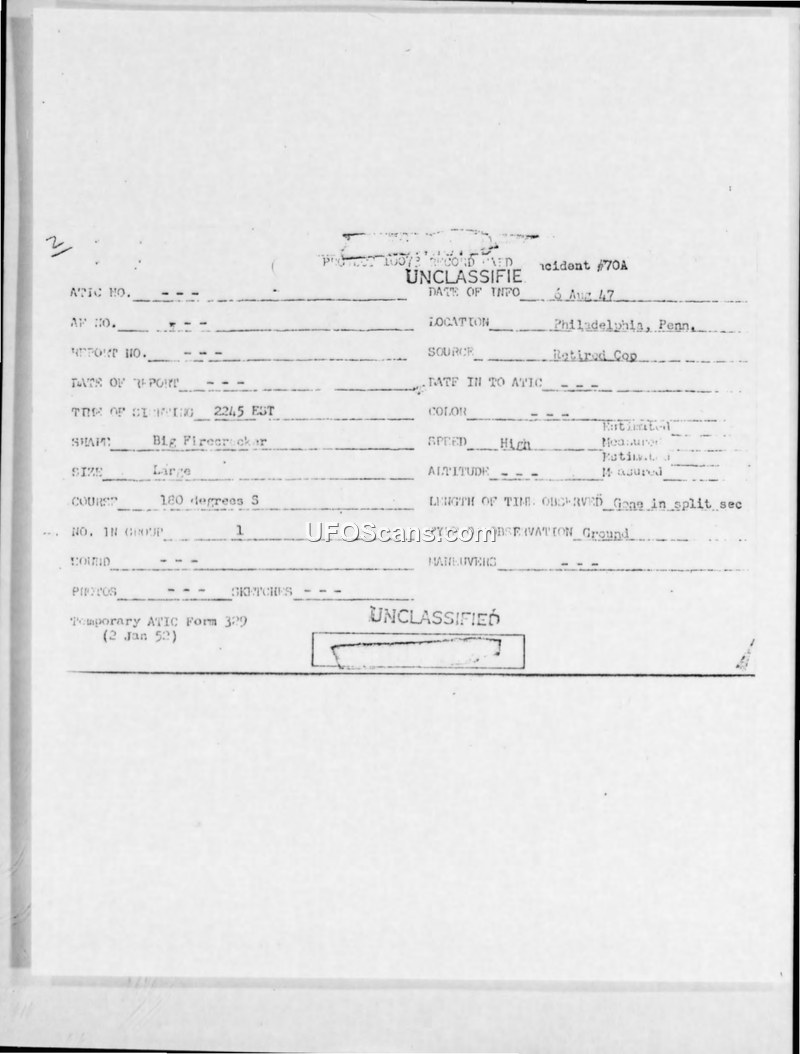 2
PROJECT 10073 RECORD CARD Incident #70A
UNCLASSIFIE
ATIC NO. - - - DATE OF INFO 6 Aug 47
AF NO. - - - LOCATION Philadelphia, Penn.
REPORT NO. - - - SOURCE Retired Cop
DATE OF REPORT - - - DATE IN TO ATIC - - -
TIME OF SIGHTING 2245 EST COLOR - - -
SHAPE Big Firecracker SPEED High Estimated Measured
SIZE Large ALTITUDE - - - Estimated Measured
COURSE 180 degrees S LENGTH OF TIME OBSERVED Gone in split sec
NO. IN GROUP 1 TYPE OF OBSERVATION Ground
UFOScans.com
SOUND - - - MANEUVERS - - -
PHOTOS - - - SKETCHES - - -
Temporary ATIC Form 329
(2 Jan 52)
UNCLASSIFIED